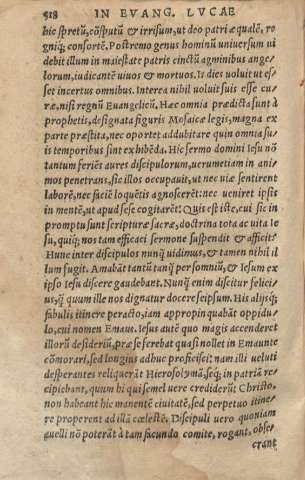 518 IN EVANG. LVCAE
hic spretū, cōsputū & irrisum, ut deo patri æqualē, re
gniq; consortē. Postremo genus hominū uniuersum ui
debit illum in maiestate patris cinctū agminibus ange-
lorum, iudicantē uiuos & mortuos. Is dies uoluit ut es-
set incertus omnibus. Interea nihil uoluit suis esse cu-
ræ, nisi regnū Euangelicū. Hæc omnia prædicta sunt à
prophetis, designata figuris Mosaicæ legis, magna ex
parte præstita, nec oportet addubitare quin omnia su-
is temporibus sint exhibēda. Hic sermo domini Iesu nō
tantum feriēs aures discipulorum, uerumetiam in ani-
mos penetrans, sic illos occupauit, ut nec uiæ sentirent
laborē, nec faciē loquētis agnoscerēt: nec ueniret ipsis
in mentē, ut apud se se cogitarēt: Quis est iste, cui sic in
promptu sunt scripturæ sacræ, doctrina tota ac uita Ie
su, quiq; nos tam efficaci sermone suspendit & afficit?
Hunc inter discipulos nunq̄ uidimus, & tamen nihil il
lum fugit. Amabāt tantū tanq̄ per somniū, & Iesum ex
ipso Iesu discere gaudebant. Nunq̄ enim discitur felici-
us, q̄ quum ille nos dignatur docere seipsum. His alijsq;
fabulis itinere peracto, iam appropinquabāt oppidu-
lo, cui nomen Emaus. Iesus autē quo magis accenderet
illorū desideriū, præ se ferebat quasi nollet in Emaunte
cōmorari, sed longius adhuc proficisci: nam illi ueluti
desperantes reliquerāt Hierosolymā, seq; in patriā re-
cipiebant, quum hi qui semel uere crediderūt Christo,
non habeant hic manentē ciuitatē, sed perpetuo itine-
re properent ad illā cœlestē. Discipuli uero quoniam
auelli nō poterāt à tam facundo comite, rogant, obse-
crant